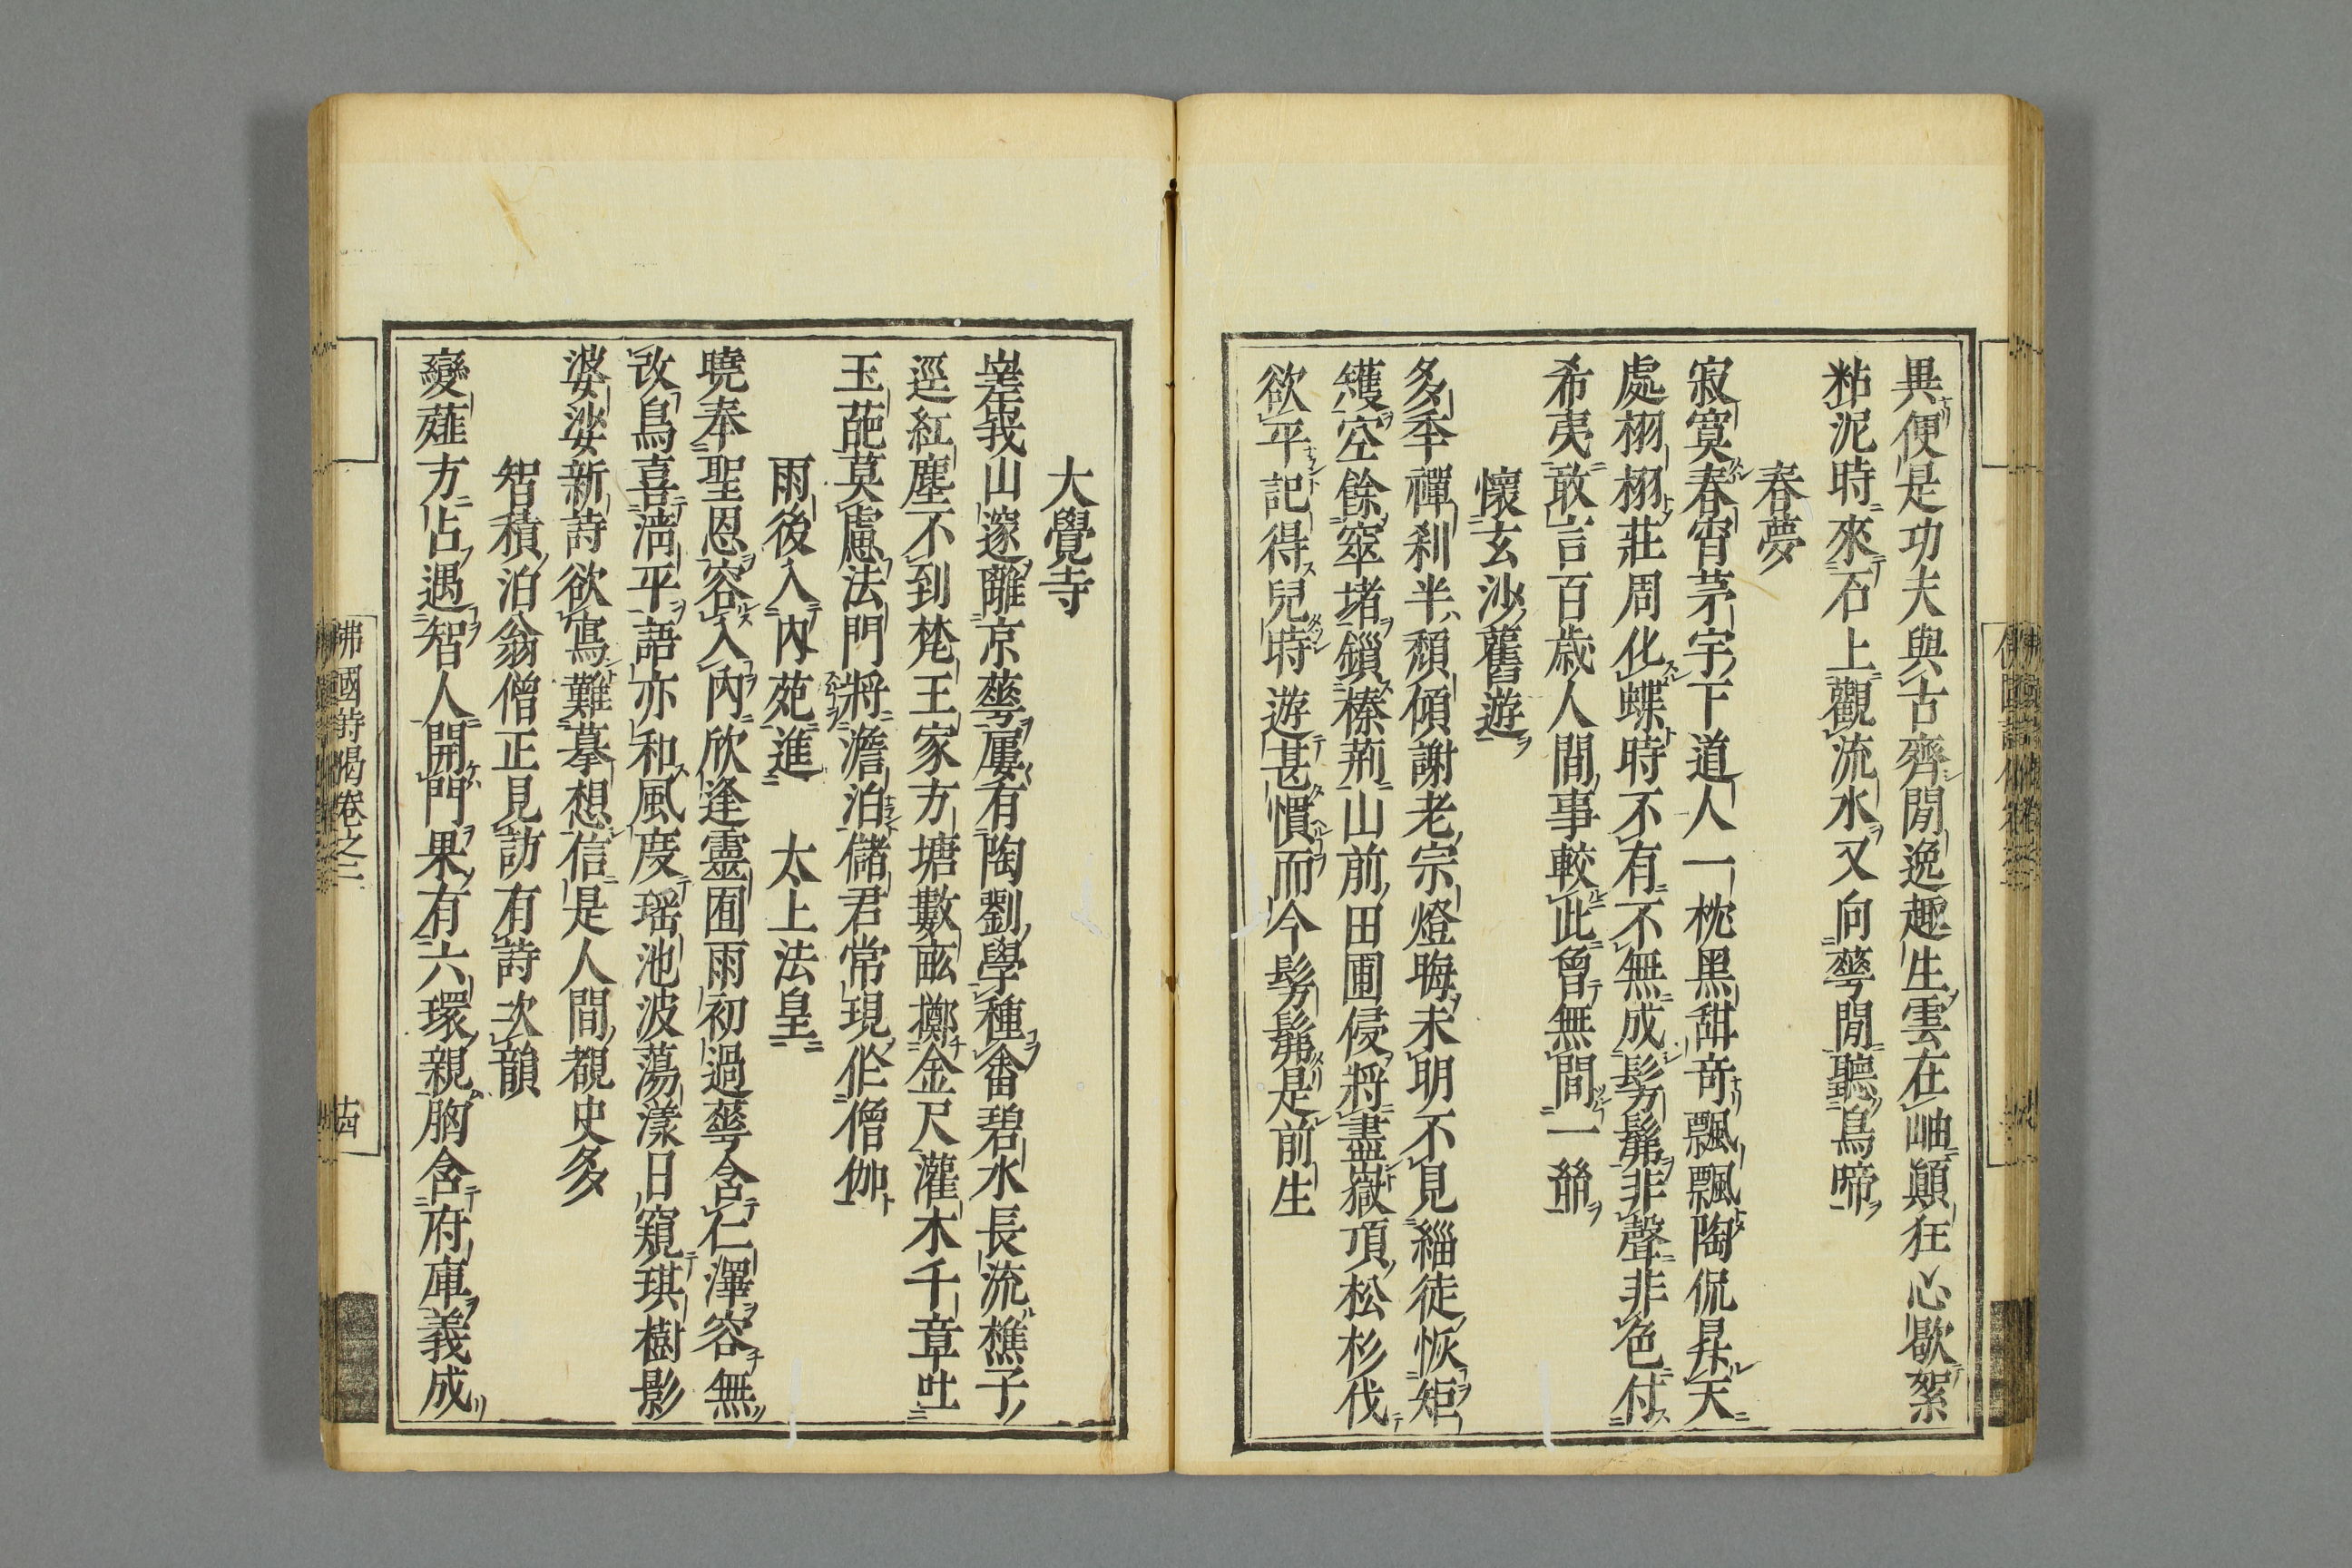 異便是功夫與古齊閒逸趣生雲在岫顛狂心歇絮
粘泥時來石上觀流水又向蕚閒聽鳥啼
春夢
寂寞春宵茅宇下道人一枕黑甜竒飄飄陶侃昇天
處栩栩莊周化蝶時不有不無成髣髴非聲非色付
希夷敢言百歳人間事較此曾無間一絲
懷玄沙舊遊
多年禪刹半頽傾謝老宗燈晦未明不見緇徒恢矩
矱空餘窣堵鎖榛荊山前田圃侵將盡嶽頂松杉伐
欲平記得兒時遊甚慣而今髣髴是前生
大覺寺
嵳峩山邃離京蕚屢有陶劉學種畨碧水長流樵子
逕紅塵不到梵王家方塘數畝擲金尺灌木千章吐
玉葩莫慮法門將澹泊儲君常現作僧伽
雨後入內苑進　太上法皇
曉奉聖恩容入內欣逢靈囿雨初過蕚含仁澤容無
改鳥喜淸平語亦和風度瑶池波蕩漾日窺琪樹影
婆娑新詩欲寫難摹想信是人間覩史多
智積泊翁僧正見訪有詩次韻
變薙方占遇智人開門果有六環親胸含府庫義成
佛國詩偈卷之二
十四